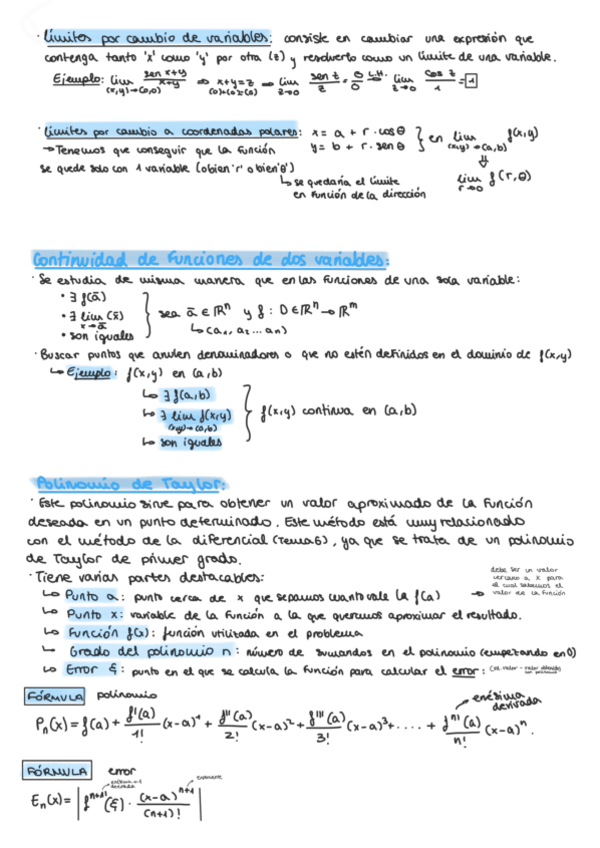 · Límites por cambio de variables: consiste en cambiar una expresión que
contenga tanto 'x' como 'y' por otra (z) y resolverlo como un límite de una variable.
Ejemplo: lim (x,y)→(0,0) sen x+y / x+y ⇒ x+y=z (0)+(0)=(0) ⇒ lim z→0 sen z / z = 0/0 L.H. → lim z→0 cos z / 1 = 1
· Límites por cambio a coordenadas polares: x = a + r · cosθ } en lim (x,y)→(a,b) f(x,y)
→ Tenemos que conseguir que la función y = b + r · senθ
se quede solo con 1 variable (o bien 'r' o bien 'θ') ⇓ lim r→0 f(r,θ)
↳ se quedaría el límite
en función de la dirección
Continuidad de funciones de dos variables:
· Se estudia de misma manera que en las funciones de una sola variable:
• ∃ f(ā)
• ∃ lim x→ā (x̄) } sea ā ∈ ℝⁿ y f : D ∈ ℝⁿ → ℝᵐ
• son iguales ↳ (a₁, a₂ ... aₙ)
· Buscar puntos que anulen denominadores o que no estén definidos en el dominio de f(x,y)
↳ Ejemplo: f(x,y) en (a,b)
↳ ∃ f(a,b)
↳ ∃ lim f(x,y) (x,y)→(a,b) } f(x,y) continua en (a,b)
↳ son iguales
Polinomio de Taylor:
· Este polinomio sirve para obtener un valor aproximado de la función
deseada en un punto determinado. Este método está muy relacionado
con el método de la diferencial (Tema 6), ya que se trata de un polinomio
de Taylor de primer grado.
· Tiene varias partes destacables:
↳ Punto a: punto cerca de x que sepamos cuanto vale la f(a) → debe ser un valor
cercano a x para
el cual sabemos el
valor de la función
↳ Punto x: variable de la función a la que queremos aproximar el resultado.
↳ Función f(x): función utilizada en el problema
↳ Grado del polinomio n: número de sumandos en el polinomio (empezando en 0)
↳ Error ξ: punto en el que se calcula la función para calcular el error:
FÓRMULA polinomio
Pₙ(x) = f(a) + f'(a)/1! (x-a)¹ + f''(a)/2! (x-a)² + f'''(a)/3! (x-a)³ + .... + fⁿ'(a)/n! (x-a)ⁿ.
enésima
derivada
FÓRMULA error
Eₙ(x) = | fⁿ⁺¹(ξ) · (x-a)ⁿ⁺¹/(n+1)! |